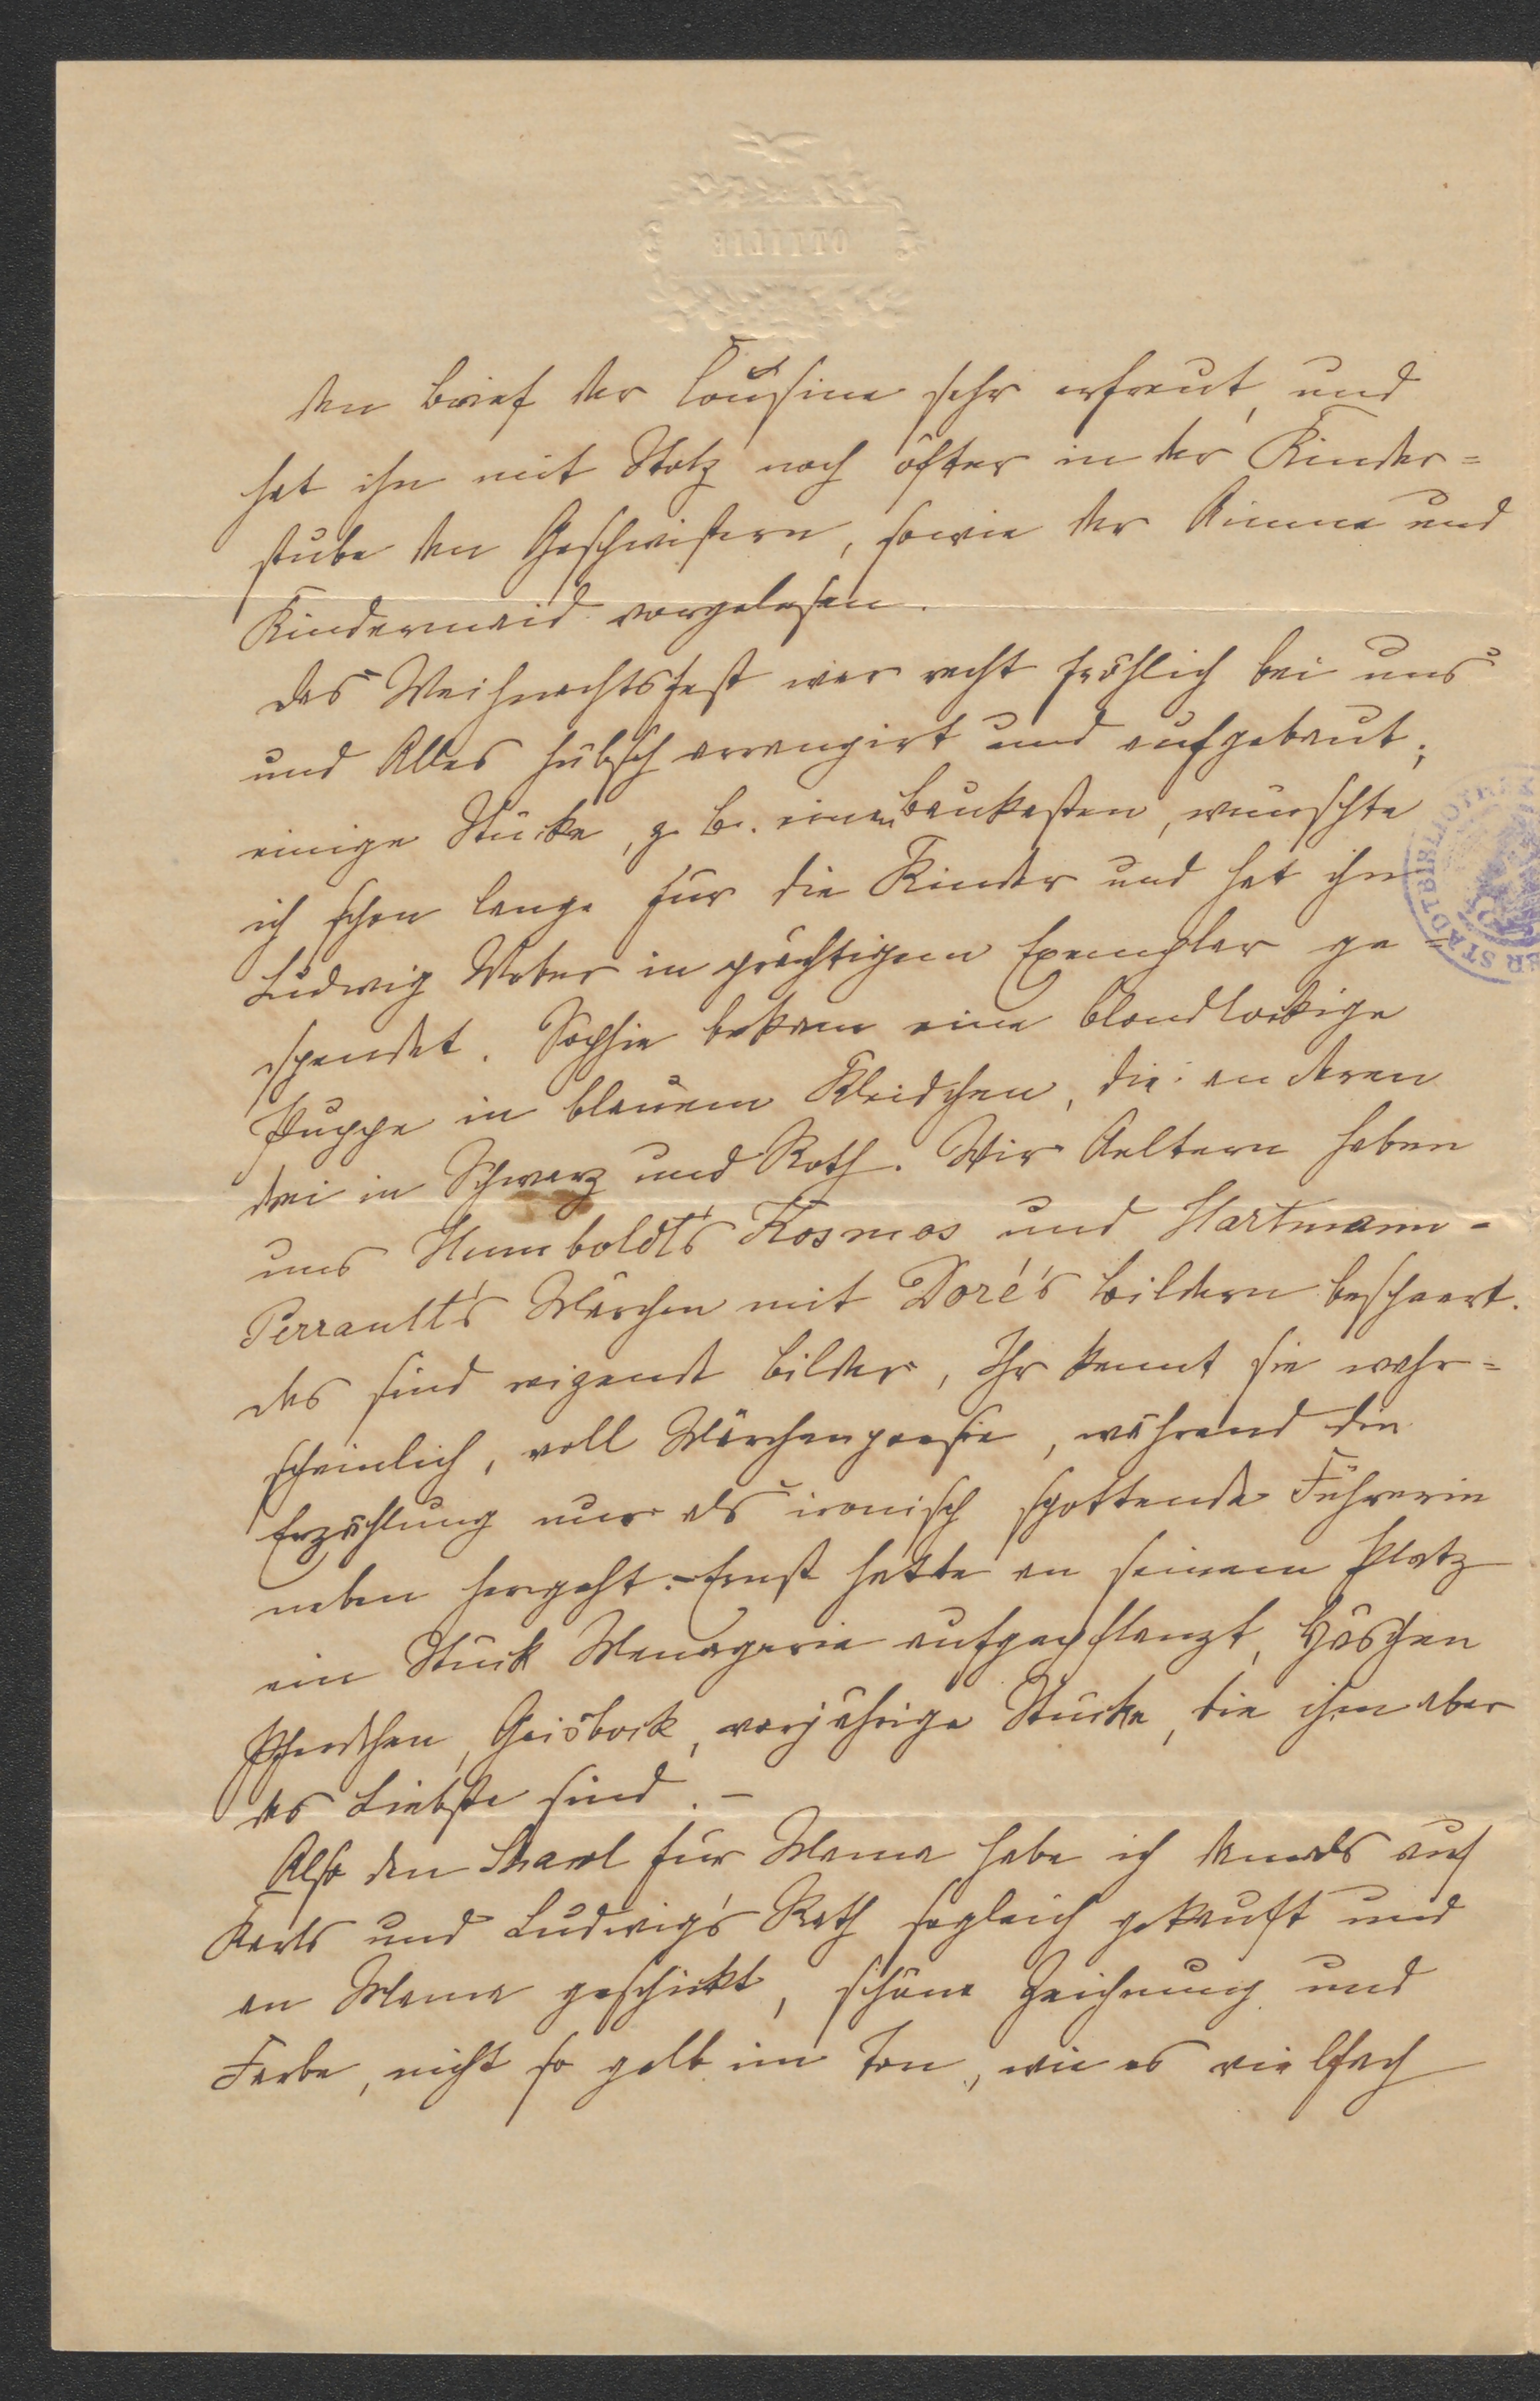 OTTILIE
den Brief der Cousine sehr erfreut, und
hat ihn mit Stolz noch öfter in der Kinder=
stube den Geschwistern, sowie der Amme und
Kindermaid vorgelesen.
Das Weihnachtsfest war recht fröhlich bei uns
und Alles hübsch arrangirt und aufgebaut;
einige Stücke, z. B. einen Baukasten, wünschte
ich schon lange für die Kinder und hat ihn
Ludwig Weber in prächtigem Exemplar ge=
spendet. Sophie bekam eine blondlockige
Puppe in blauem Kleidchen, die anderen
drei in Schwarz und Roth. Wir Aeltern haben
uns Humboldt's Kosmos und Hartmann-
Perrault's Märchen mit Doré's Bildern bescheert.
Das sind reizende Bilder, Ihr kennt sie wahr=
scheinlich, voll Märchenpoesie, während die
Erzählung nur als ironisch spottende Führerin
neben hergeht. – Ernst hatte an seinem Platz
ein Stück Menagerie aufgepflanzt, Häschen
Pferdchen, Geisbock, vorjährige Stücke, die ihm aber
das Liebste sind. –
Also den Shawl für Mama habe ich damals auf
Karls und Ludwig's Rath sogleich gekauft und
an Mama geschickt, schöne Zeichnung und
Farbe, nicht so gelb im Ton, wie es vielfach